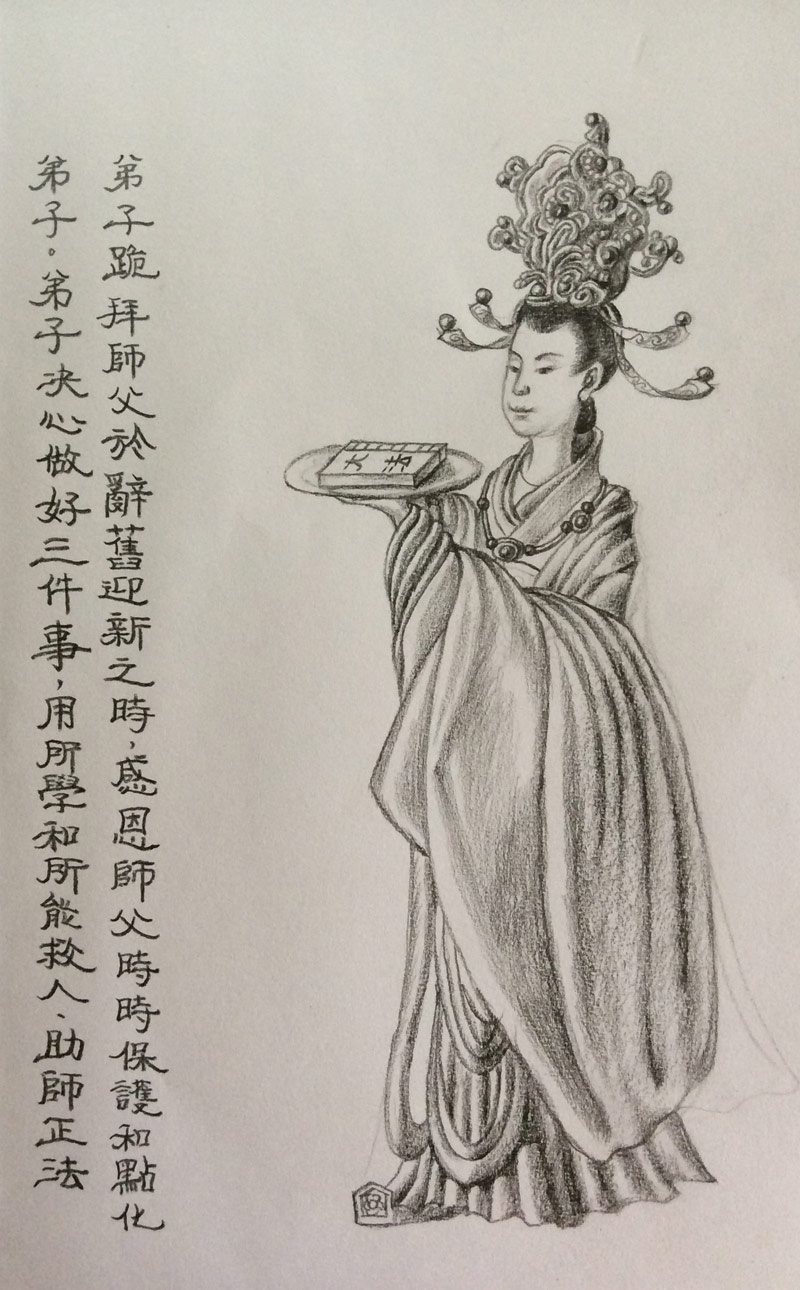 弟子跪拜師父於辭舊迎新之時，感恩師父時時保護和點化
弟子。弟子決心做好三件事，用所學和所能救人、助師正法
大法